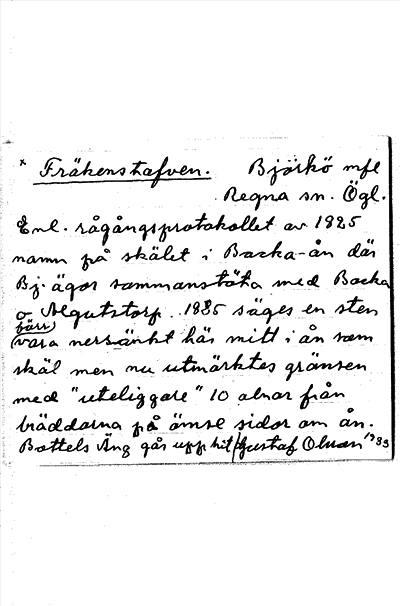 x Fräkenstafven. Björkö mfl
Regna sn. Ögl.
Enl. rågångsprotokollet av 1825
namn på skälet i Backa-ån där
Bj. ägor sammanstöta med Backa
o Algutstorp. 1825 säges en sten
(förr)
vara nersänkt här mitt i ån som
skäl men nu utmärktes gränsen
med "uteliggare" 10 alnar från
bräddarna på ömse sidor om ån.
Bottels Äng går upp hit Gustaf Olsson 1933